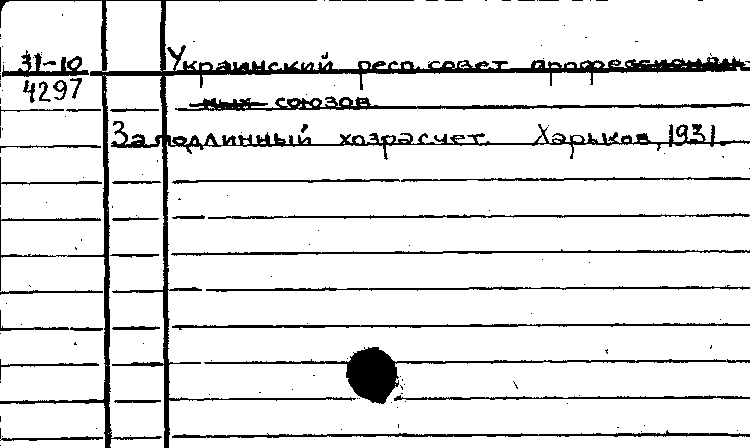 31-10
4297
Украинский респ. совет профессиональ-
ных союзов
За подлинный хозрасчет. Харьков, 1931.